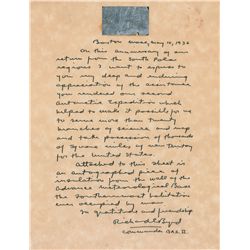 Boston Mass, May 10, 1936
On this anniversary of our
return from the South Polar
regions I want to express to
you my deep and enduring
appreciation of the assistance
you rendered our second
Antarctic Expedition which
helped to make it possible for us
to serve more than twenty
branches of science and map
and take possession of thousands
of square miles of new territory
for the United States.
Attached to this sheet is
an autographed piece of
insulation from the wall of the
Advance Meteorological Base
the Southernmost habitation
ever occupied by man
In gratitude and friendship
Richard E Byrd
Commander B.A.E. II